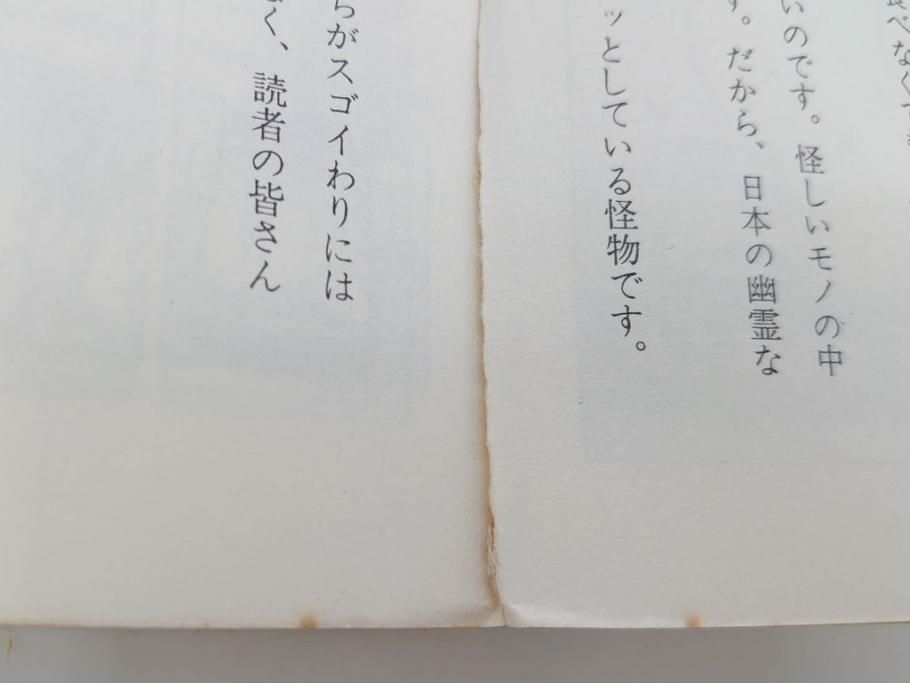 食べなくて
いのです。怪しいモノの中
す。だから、日本の幽霊な
ッとしている怪物です。
らがスゴイわりには
く、読者の皆さん